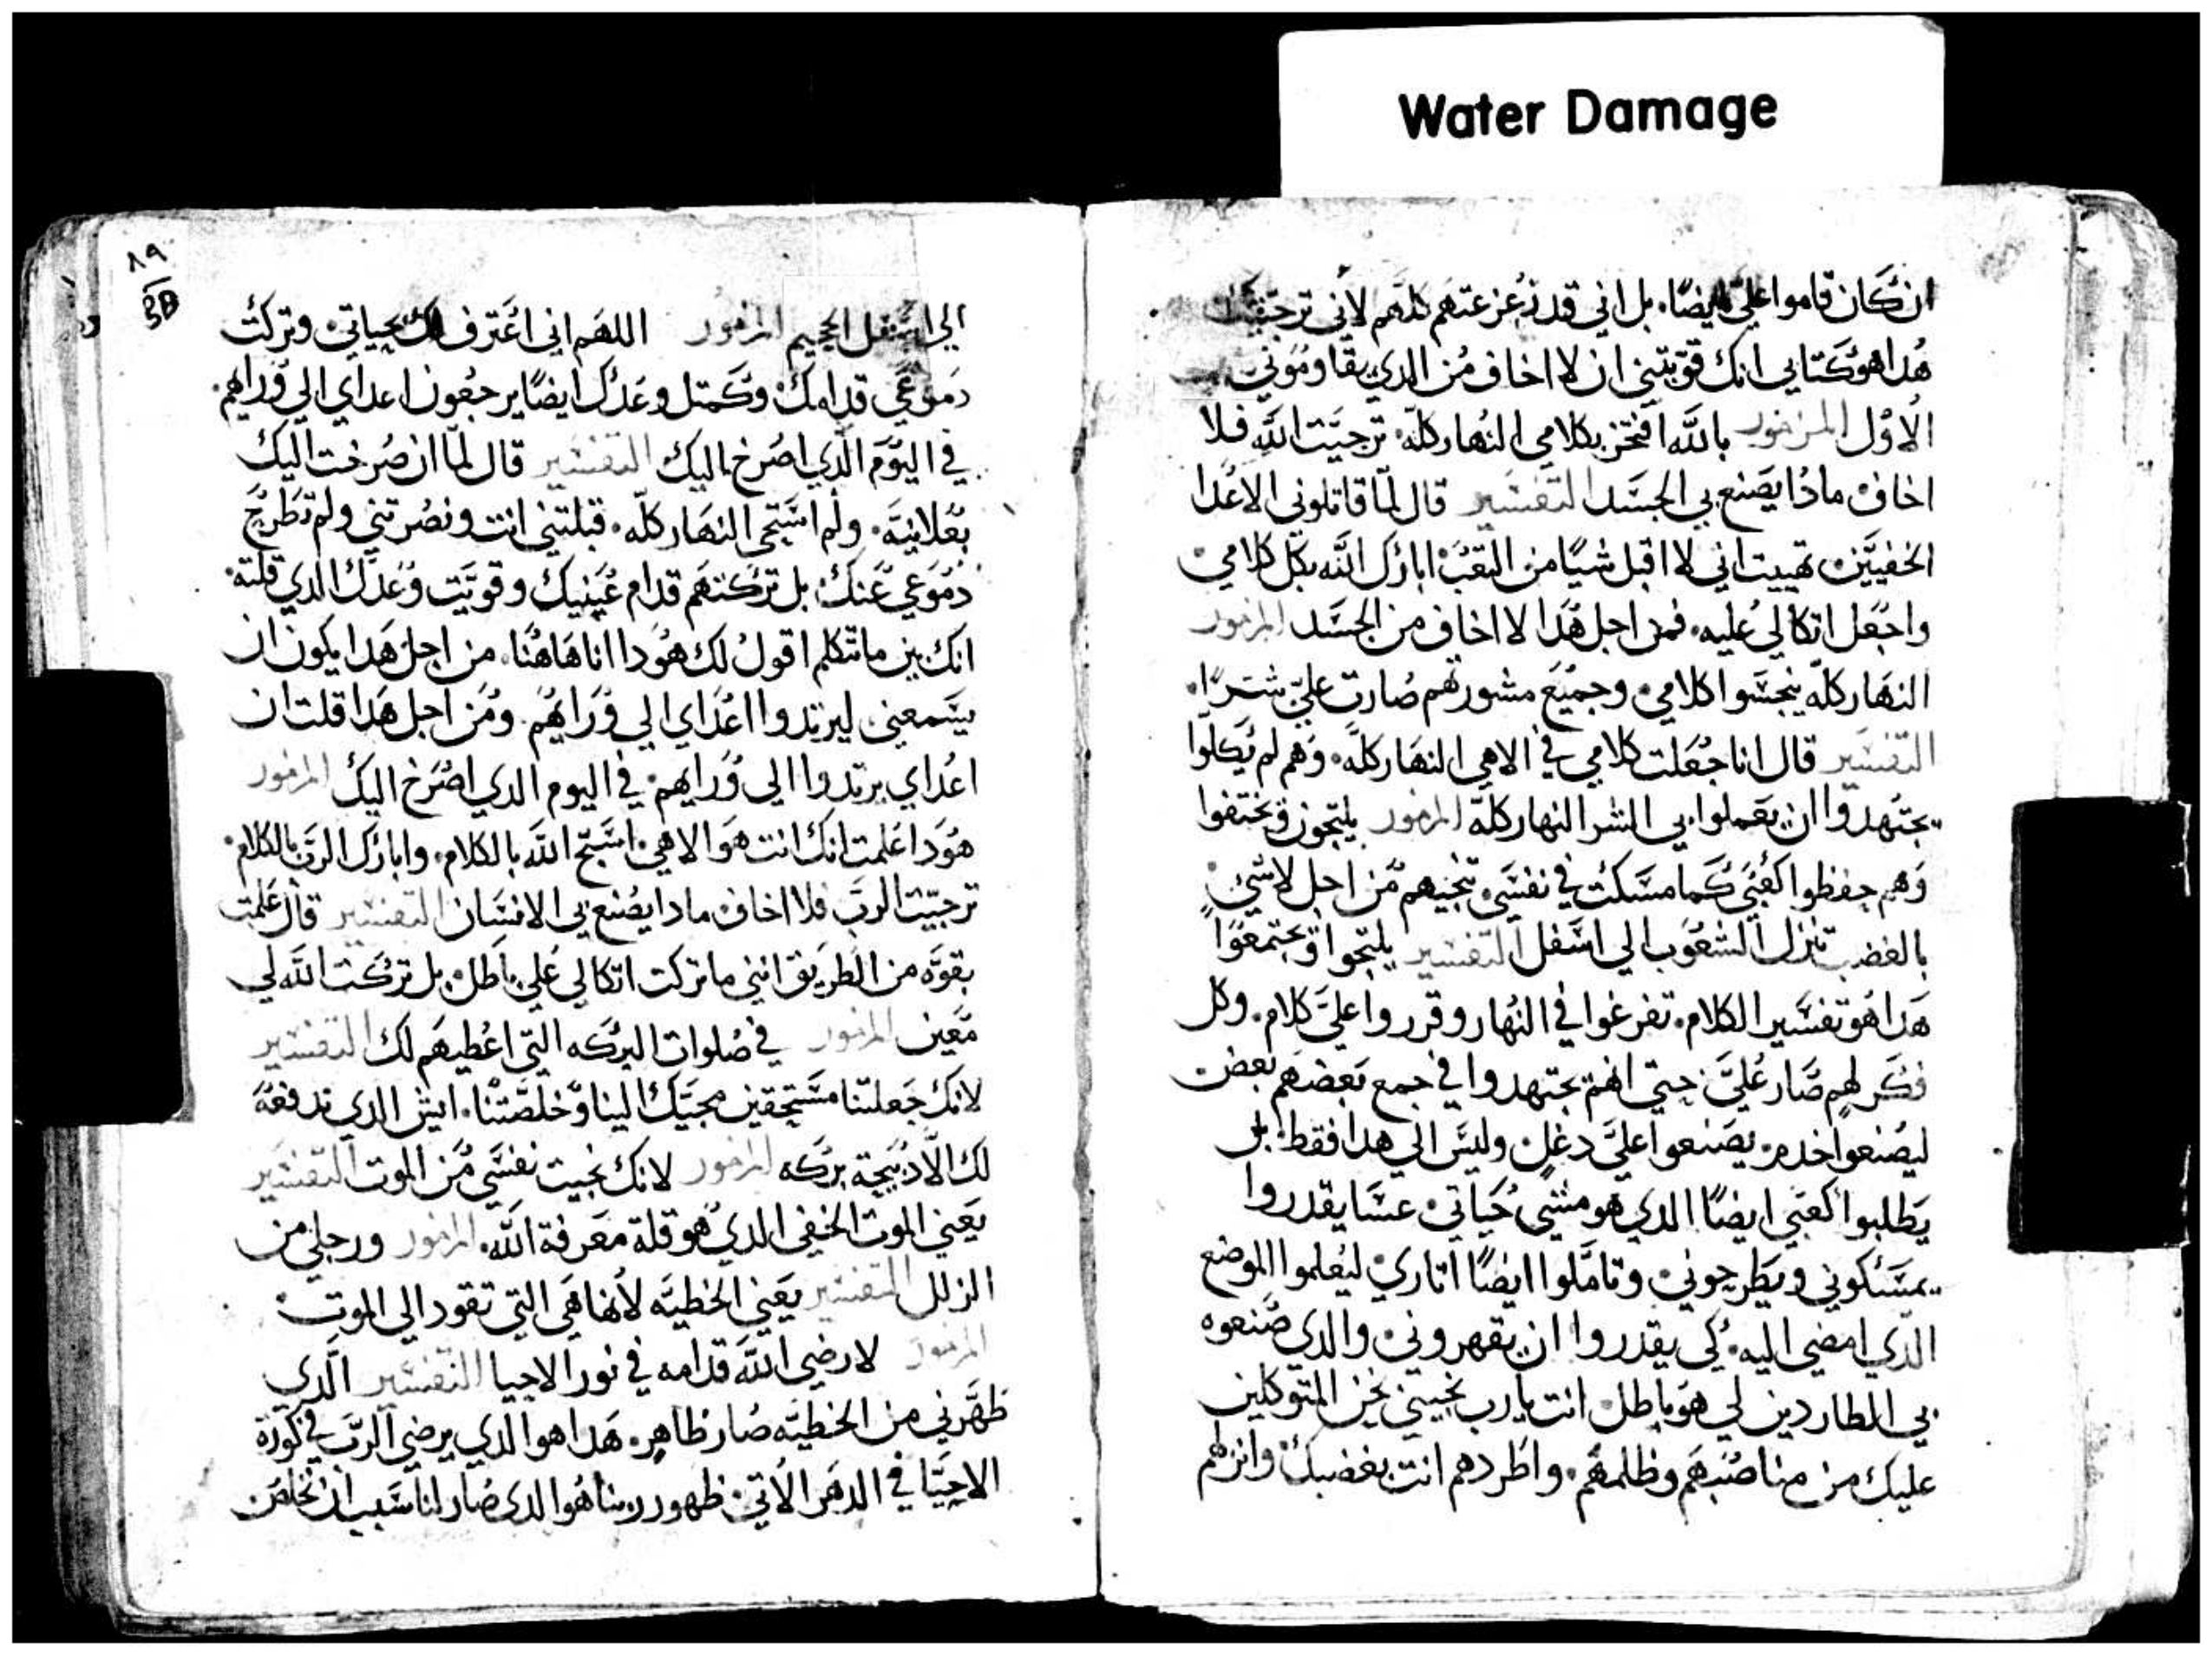 Water Damage
ان كان قاموا علي ايضًا. بل اني قد زعزعتهم كلهم لأني ترجيتك
هدا هو كتابي انك قويتني ان لا اخاف من الدي يقاوموني
الاول المزمور بالله افتخر بكلامي النهار كله. ترجيت الله فلا
اخاف مادا يصنع بي الجسد التفسير قال لما قاتلوني الاعدا
الخفيين تهييت اني لا اقبل شيا من التعب ابارك الله بكل كلامي
واجعل اتكالي عليه. فمن اجل هدا لا اخاف من الجسد المزمور
النهار كله ينجسوا كلامي. وجميع مشورتهم صارت علي شرًا.
التفسير قال انا جعلت كلامي في الاهي النهار كله. وهم لم يكلوا
يجتهدوا ان يعملوا بي الشر النهار كله المزمور يلتجون ويختفوا
وهم يحفظوا كعبي كما مسكت في نفسي تنجيهم من اجل لاشي
بالغضب تنزل الشعوب الي اسفل التفسير يلتجوا ويجتمعوا
هدا هو تفسير الكلام. تفرغوا في النهار وقرروا علي كلام. وكل
فكر لهم صار علي حتي انهم يجتهدوا في جمع بعضهم بعض
ليصنعوا يصنعوا علي دغل وليس الي هدا فقط. بل
يطلبوا كعبي ايضًا الدي هو مشي حياتي عسا يقدروا
يمسكوني ويطرحوني. وتاملوا ايضًا اتاري ليعلموا الموضع
الدي امضي اليه. كي يقدروا ان يقهروني. والدي صنعوه
بي المطاردين لي هو باطل. انت يارب نجيني نحن المتوكلين
عليك من مناصبهم وظلمهم. واطردهم انت بغضبك وانزلهم
٨٩
3B
الي اسفل الجحيم المزمور اللهم اني اعترف لك بحياتي. وتركت
دموعي قدامك. وكمتل وعدك ايضًا يرجعون اعداي الي وراهم.
في اليوم الدي اصرخ اليك التفسير قال لما ان صرخت اليك
بعلانية. ولم استحي النهار كله. قبلتني انت ونصرتني ولم تطرح
دموعي عنك. بل تركتهم قدام عينيك وقويت وعدك الدي قلته.
انك بين ما تتكلم اقول لك هودا انا هاهنا. من اجل هدا يكون ان
يسمعني ليرتدوا اعداي الي وراهم. ومن اجل هدا قلت ان
اعداي يرتدوا الي ورايهم. في اليوم الدي اصرخ اليك المزمور
هودا علمت انك انت هو الاهي. اسبح الله بالكلام. وابارك الرب بالكلام.
ترجيت الرب فلا اخاف مادا يصنع بي الانسان التفسير قال علمت
بقوة من الطريق انني ما تركت اتكالي علي باطل. بل تركت الله لي
معين المزمور في صلوات البركه التي اعطيهم لك التفسير
لانك جعلتنا مستحقين مجيك الينا وخلصتنا. ايش الدي ندفعه
لك الا دبيحة بركه المزمور لانك نجيت نفسي من الموت التفسير
يعني الموت الخفي الدي هو قلة معرفة الله. المزمور ورجلي من
الزلل التفسير يعني الخطيه لأنها هي التي تقود الي الموت.
المزمور لارضي الله قدامه في نور الاحيا التفسير الدي
ظهرني من الخطيه صار ظاهر. هدا هو الدي يرضي الرب في كورة
الاحيا في الدهر الاتي. ظهور ربنا هو الدي صار لنا سبب ان نخلص من